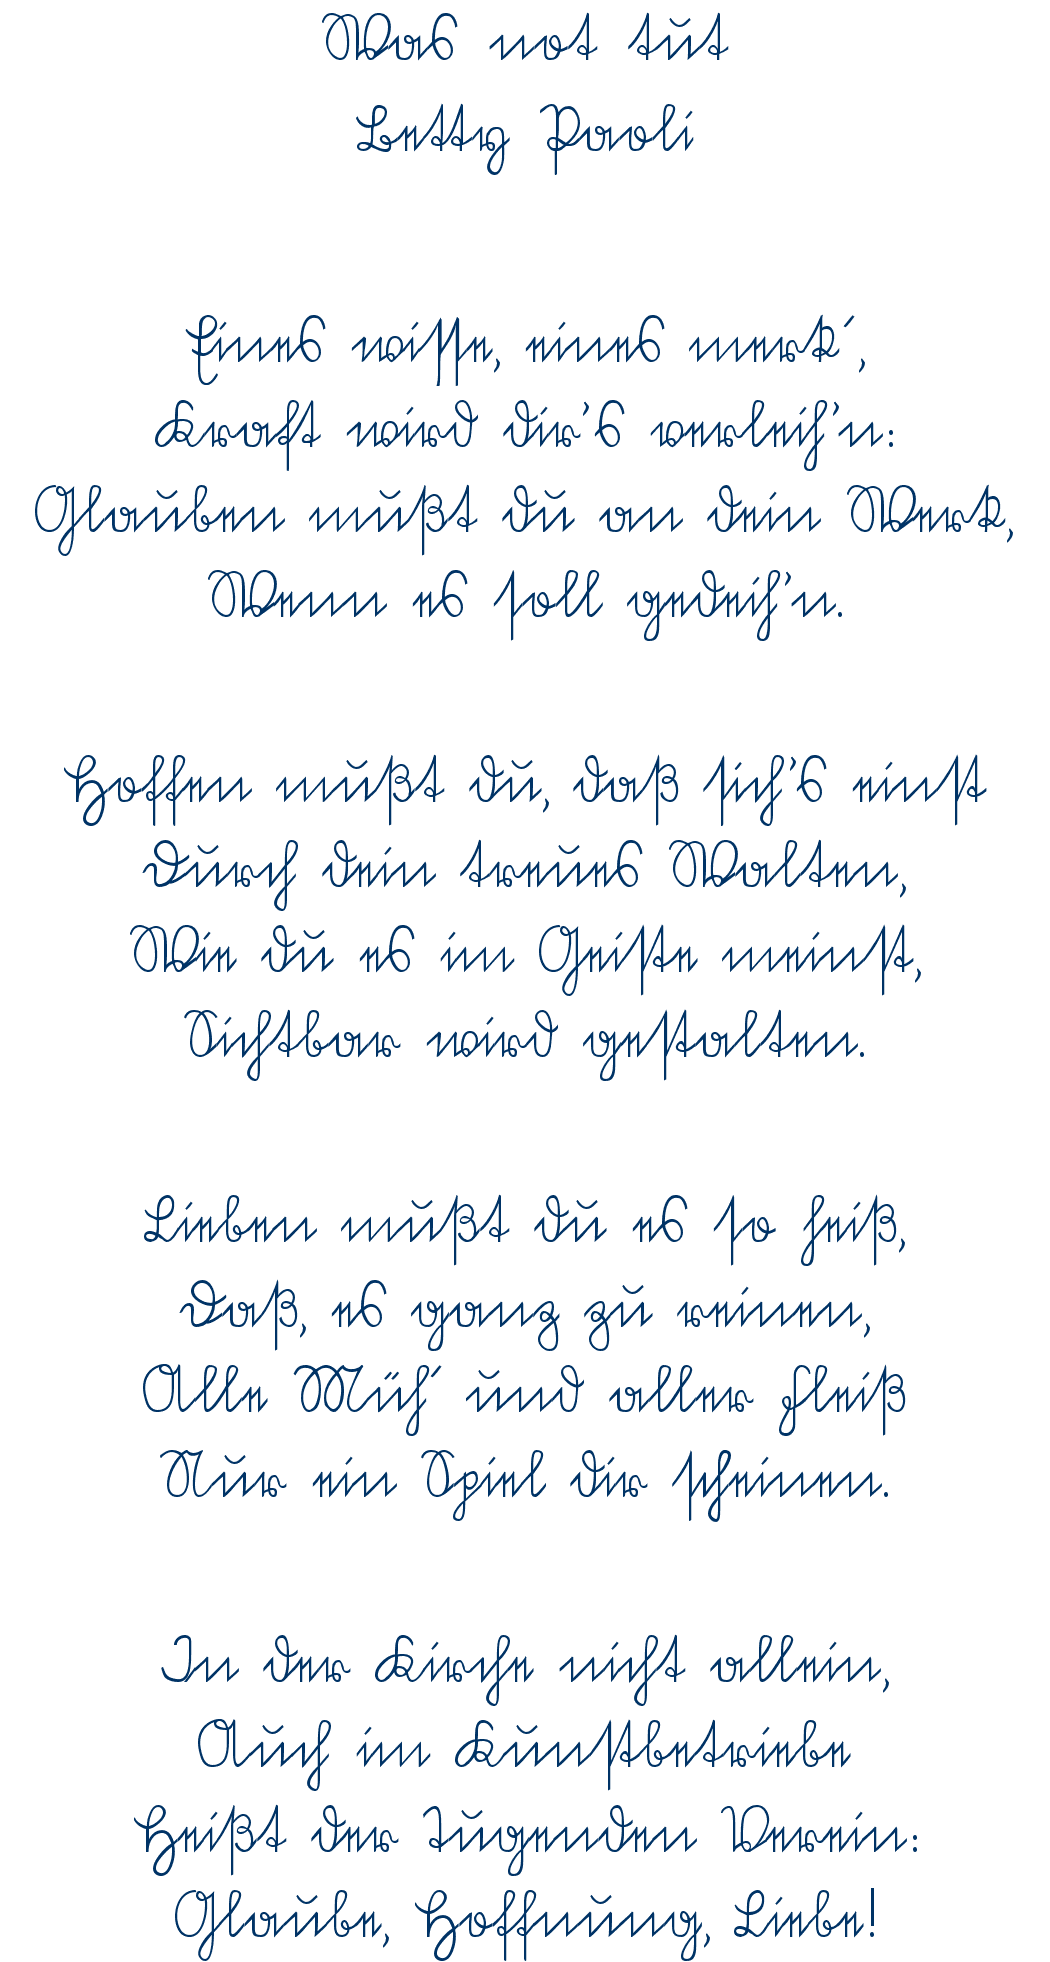 Was not tut
Betty Paoli
Eines wisse, eines merk´,
Kraft wird dir's verleih'n:
Glauben mußt du an dein Werk,
Wenn es soll gedeih'n.
Hoffen mußt du, daß sich's einst
Durch dein treues Walten,
Wie du es im Geiste meinst,
Sichtbar wird gestalten.
Lieben mußt du es so heiß,
Daß, es ganz zu reinen,
Alle Müh´ und aller Fleiß
Nur ein Spiel dir scheinen.
In der Kirche nicht allein,
Auch im Kunstbetriebe
Heißt der Tugenden Verein:
Glaube, Hoffnung, Liebe!